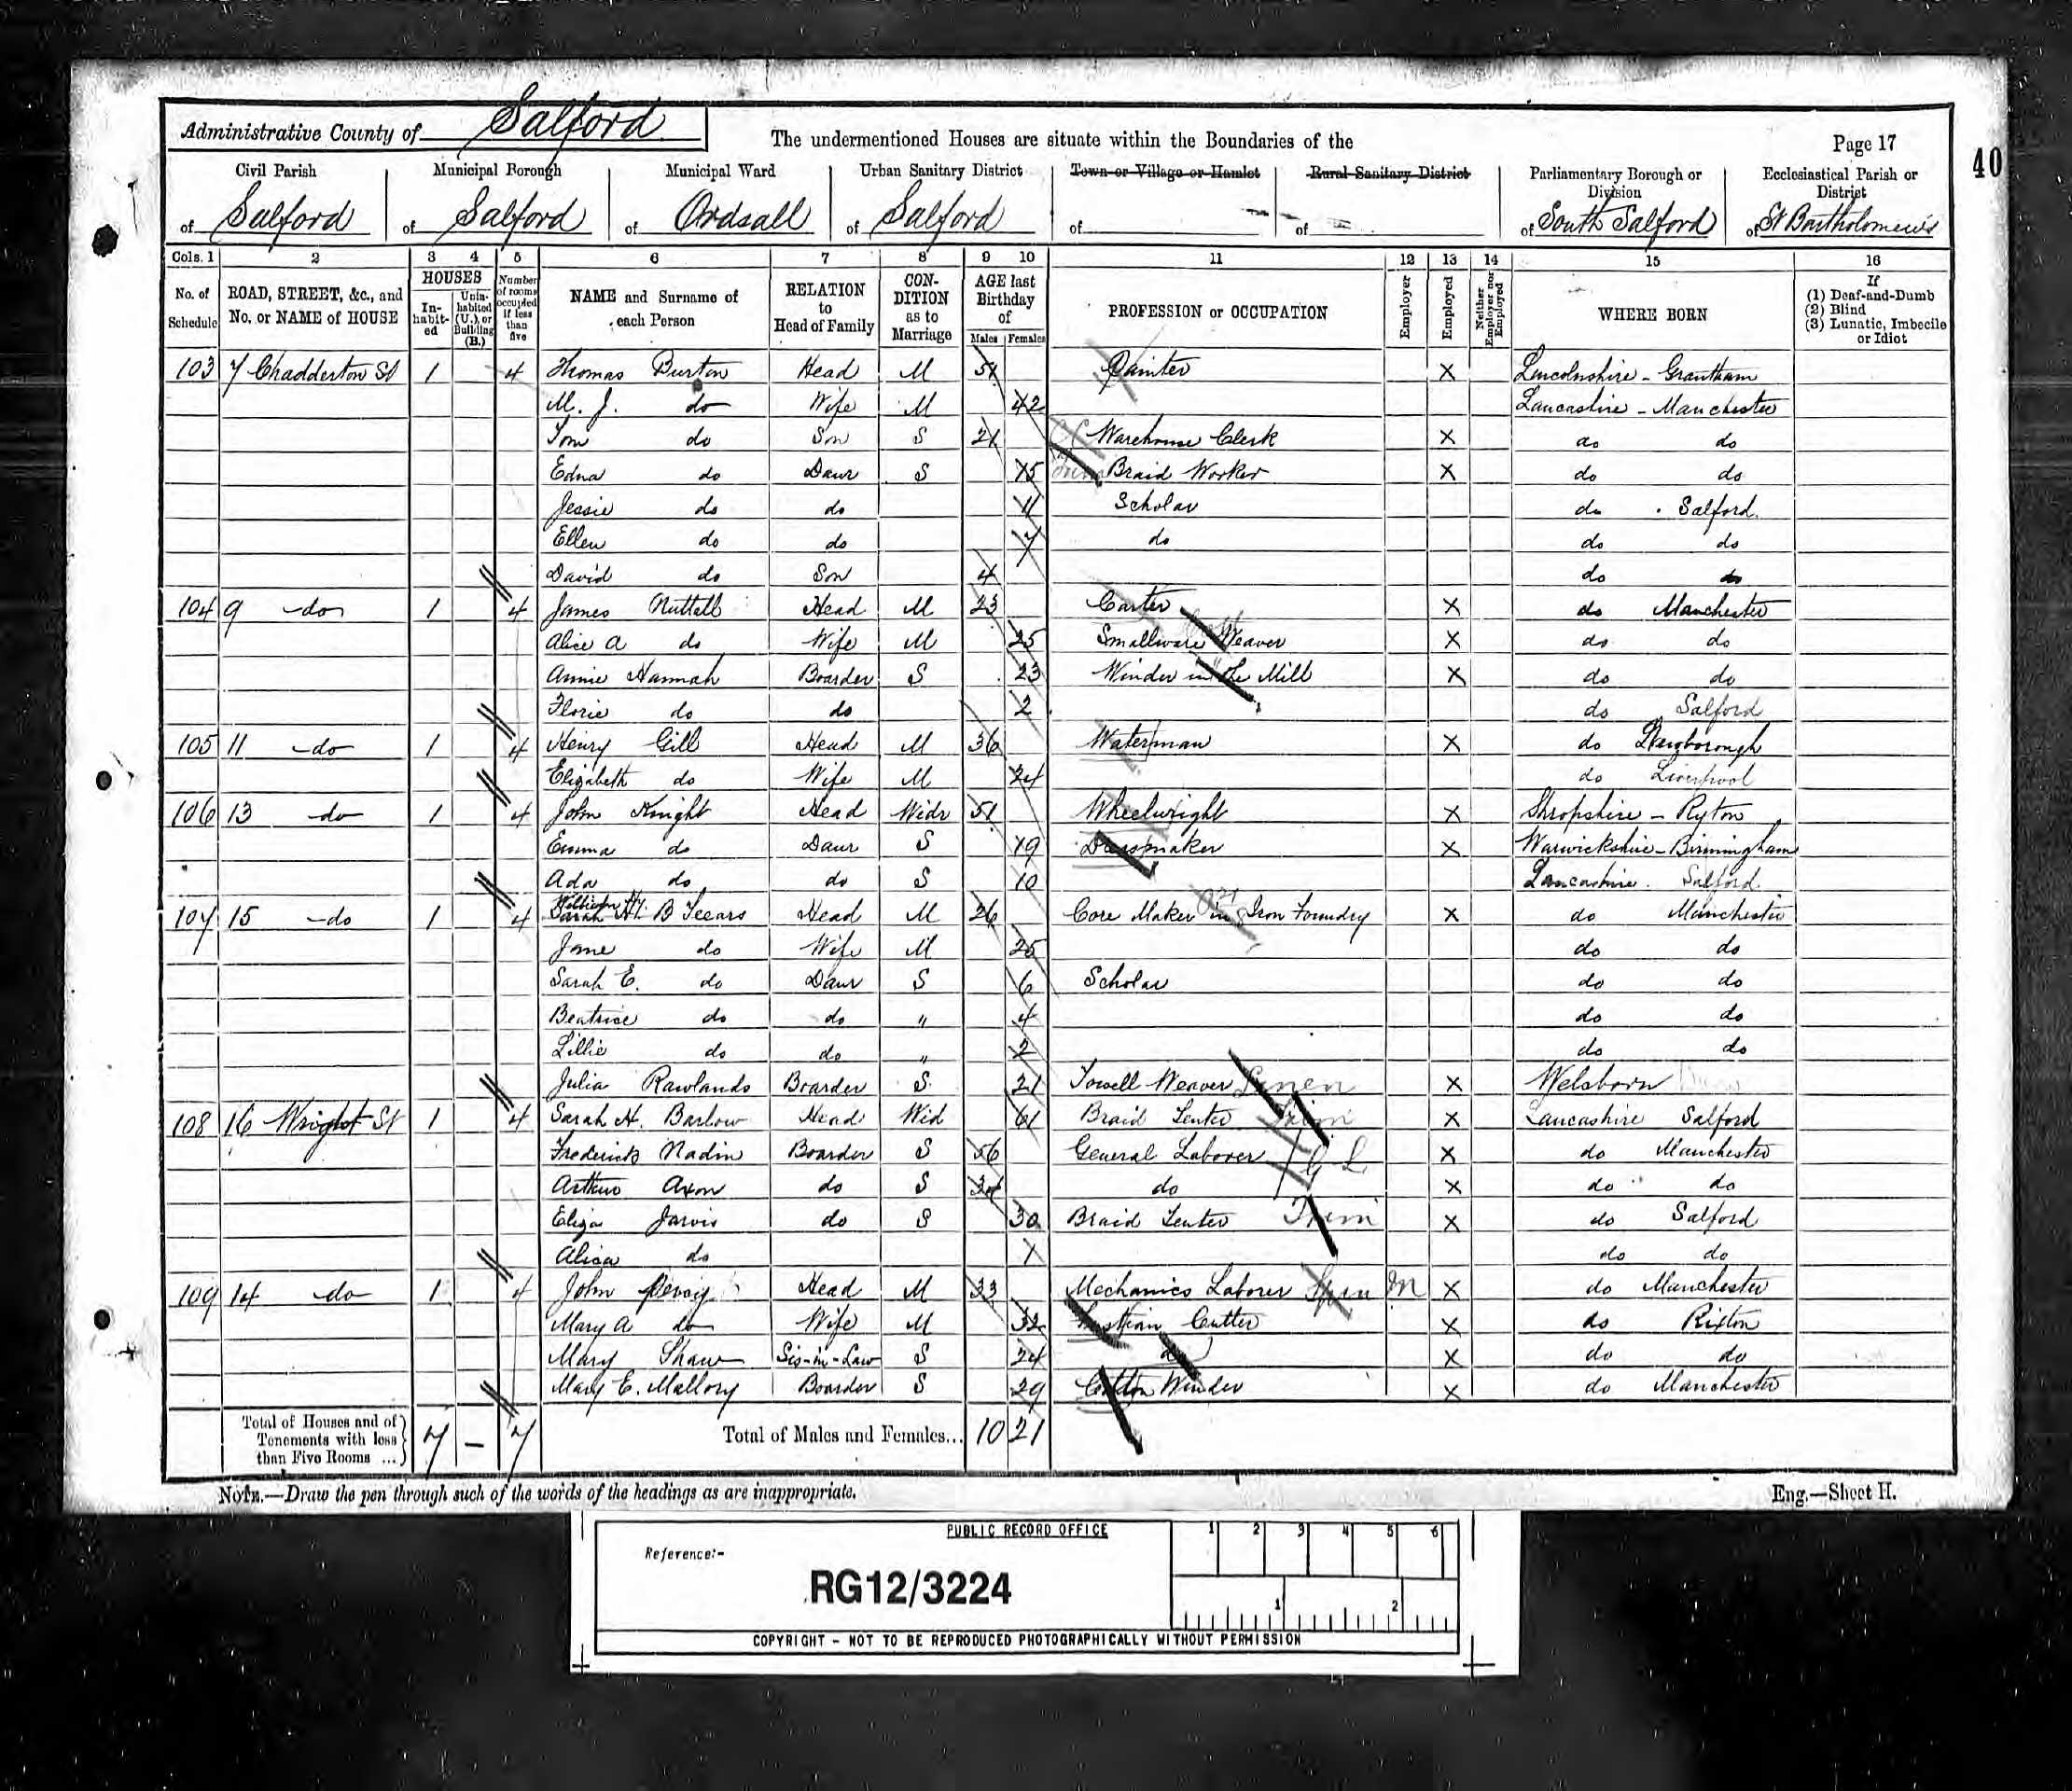 Administrative County of Salford
The undermentioned Houses are situate within the Boundaries of the
Page 17
40
Civil Parish of Salford
Municipal Borough of Salford
Municipal Ward of Ordsall
Urban Sanitary District of Salford
Town or Village or Hamlet of
Rural Sanitary District of
Parliamentary Borough or Division of South Salford
Ecclesiastical Parish or District of St Bartholomew's
Cols. 1 2 3 4 5 6 7 8 9 10 11 12 13 14 15 16
No. of Schedule
ROAD, STREET, &c., and No. or NAME of HOUSE
HOUSES
In-habit-ed
Unin-habited (U.), or Building (B.)
Number of rooms occupied if less than five
NAME and Surname of each Person
RELATION to Head of Family
CON-DITION as to Marriage
AGE last Birthday of
Males Females
PROFESSION or OCCUPATION
Employer
Employed
Neither Employer nor Employed
WHERE BORN
If
(1) Deaf-and-Dumb
(2) Blind
(3) Lunatic, Imbecile or Idiot
103 7 Chadderton St 1 4 Thomas Burton Head M 51 Painter X Lincolnshire - Grantham
M. J. do Wife M 42 Lancashire - Manchester
Tom do Son S 21 Warehouse Clerk X do do
Edna do Daur S 15 Braid Worker X do do
Jessie do do 11 Scholar do Salford
Ellen do do 7 do do do
David do Son 4 do do
104 9 do 1 4 James Nuttall Head M 23 Carter X do Manchester
Alice A do Wife M 25 Smallware Weaver X do do
Annie Hannah Boarder S 23 Winder in the Mill X do do
Florie do do 2 do Salford
105 11 do 1 4 Henry Gill Head M 36 Waterman X do
Elizabeth do Wife M 24 do Liverpool
106 13 do 1 4 John Knight Head Widr 51 Wheelwright X Shropshire - Ryton
Emma do Daur S 19 Dressmaker X Warwickshire - Birmingham
Ada do do S 10 Lancashire Salford
107 15 do 1 4 William H. B Head M 26 Core Maker in Iron Foundry X do Manchester
Jane do Wife M 25 do do
Sarah E. do Daur S 6 Scholar do do
Beatrice do do " 4 do do
Lillie do do " 2 do do
Julia Rawlands Boarder S 21 Towell Weaver Linen X Welsborn
108 16 Wright St 1 4 Sarah H. Barlow Head Wid 61 Braid Tenter Trim X Lancashire Salford
Frederick Nadin Boarder S 56 General Laborer G L X do Manchester
Arthur Axon do S do X do do
Eliza Jarvis do S 30 Braid Tenter Trim X do Salford
Alica do 1 do do
109 14 do 1 4 John Head M 33 Mechanics Laborer M X do Manchester
Mary A do Wife M 32 Fustian Cutter X do Rixton
Mary Shaw Sis-in-Law S 24 do X do do
Mary E. Mallory Boarder S 29 Cotton Winder X do Manchester
Total of Houses and of Tenements with less than Five Rooms ... 7 - 7
Total of Males and Females... 10 21
NOTE.—Draw the pen through such of the words of the headings as are inappropriate.
Eng.—Sheet H.
PUBLIC RECORD OFFICE
1 2 3 4 5 6
Reference:-
RG12/3224
1 2
COPYRIGHT - NOT TO BE REPRODUCED PHOTOGRAPHICALLY WITHOUT PERMISSION